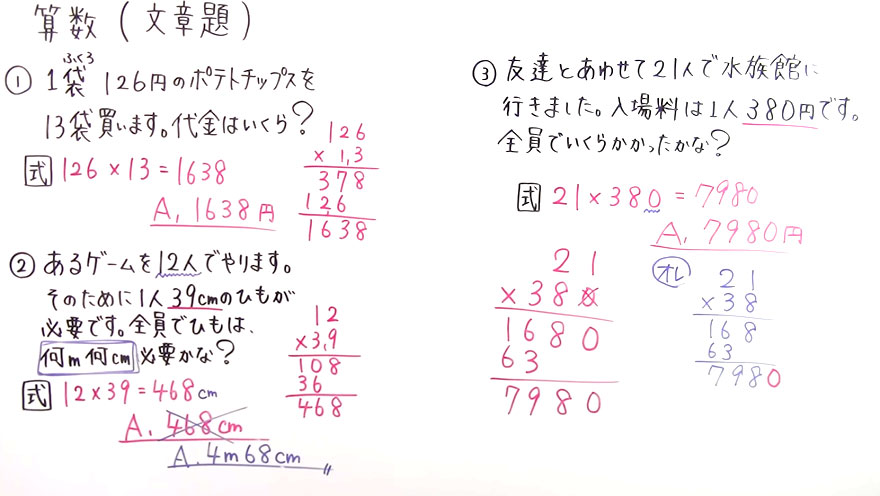 算数(文章題)
ふくろ
① 1袋 126円のポテトチップスを
13袋買います。代金はいくら?
式 126×13=1638
A, 1638円
126
×1,3
378
12,6
1638
② あるゲームを12人でやります。
そのために1人39cmのひもが
必要です。全員でひもは、
何m何cm必要かな?
式 12×39=468cm
A. 468cm
A.4m68cm
12
×3,9
108
36
468
③ 友達とあわせて21人で水族館に
行きました。入場料は1人380円です。
全員でいくらかかったかな?
式 21×380=7980
A, 7980円
21
×380
1680
63
7980
オレ
21
×38
168
63
7980